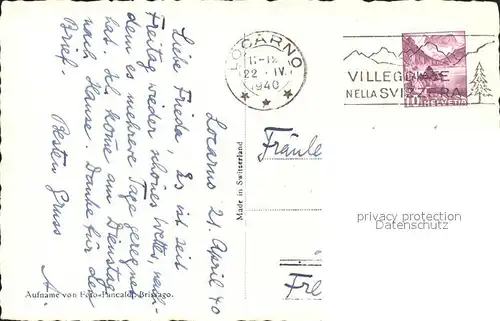 Locarno 21. April 40
Liebe Frieda, Es ist seit
Freitag wieder schönes Wetter, nach-
dem es mehrere Tage geregnet
hat. Ich komme am Dienstag
nach Hause. Danke für den
Brief.
Besten Gruss
A.
Aufname von Foto-Pancaldi, Brissago.
Made in Switzerland
LOCARNO
22. IV.
1940
VILLEGGIATE
NELLA SVIZZERA
10 HELVETIA
Fräule
Fre
privacy protection
Datenschutz